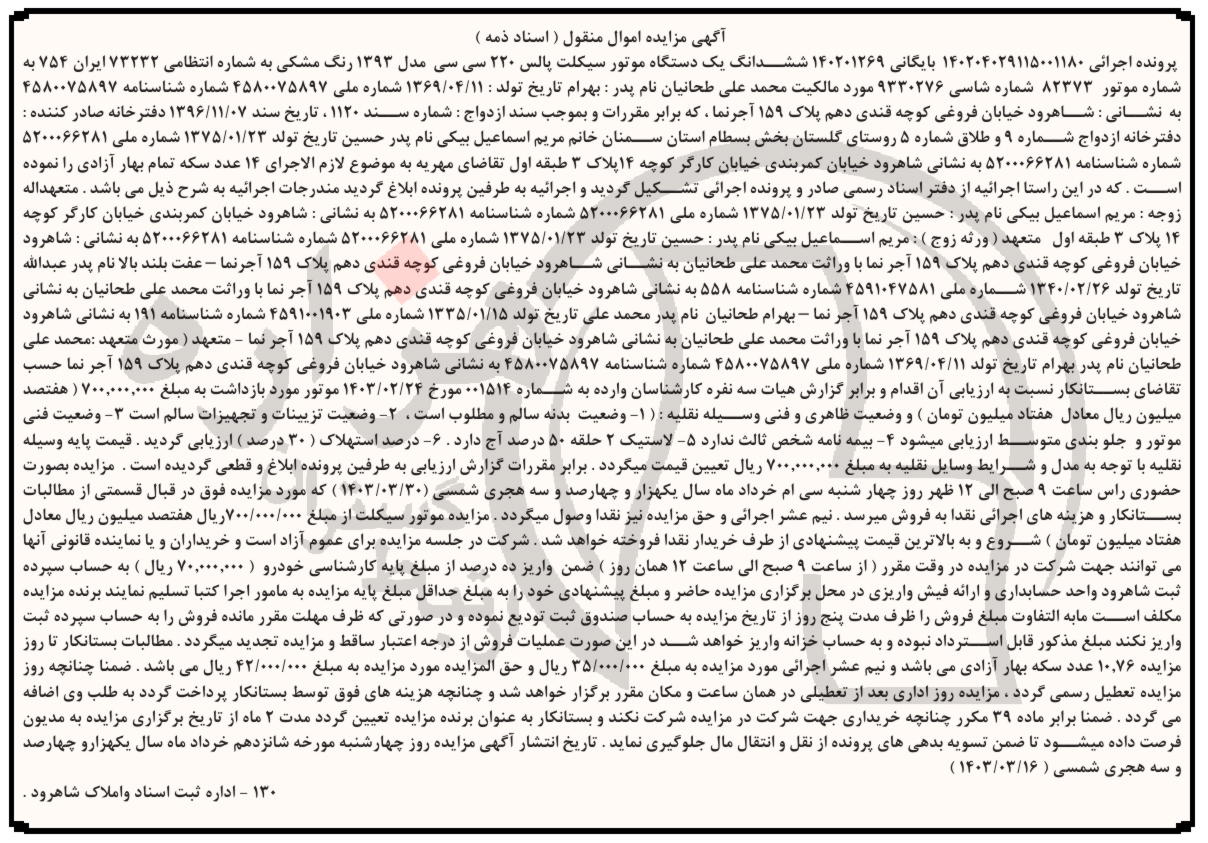 آگهی مزایده اموال منقول ( اسناد ذمه )
پرونده اجرائی ۱۴۰۲۰۴۰۲۹۱۱۵۰۰۱۱۸۰ بایگانی ۱۴۰۲۰۱۲۶۹ ششـدانگ یک دستگاه موتور سیکلت پالس ۲۲۰ سی سی مدل ۱۳۹۳ رنگ مشکی به شماره انتظامی ۷۳۲۳۲ ایران ۷۵۴ به
شماره موتور ۸۲۳۷۳ شماره شاسی ۹۳۳۰۲۷۶ مورد مالکیت محمد علی طحانیان نام پدر : بهرام تاریخ تولد : ۱۳۶۹/۰۴/۱۱ شماره ملی ۴۵۸۰۰۷۵۸۹۷ شماره شناسنامه ۴۵۸۰۰۷۵۸۹۷
به نشـانی : شـاهرود خیابان فروغی کوچه قندی دهم پلاک ۱۵۹ آجرنما ، که برابر مقررات و بموجب سند ازدواج : شماره سـند ۱۱۲۰ ، تاریخ سند ۱۳۹۶/۱۱/۰۷ دفترخانه صادر کننده :
دفترخانه ازدواج شـماره ۹ و طلاق شماره ۵ روستای گلستان بخش بسطام استان سـمنان خانم مریم اسماعیل بیکی نام پدر حسین تاریخ تولد ۱۳۷۵/۰۱/۲۳ شماره ملی ۵۲۰۰۰۶۶۲۸۱
شماره شناسنامه ۵۲۰۰۰۶۶۲۸۱ به نشانی شاهرود خیابان کمربندی خیابان کارگر کوچه ۱۴پلاک ۳ طبقه اول تقاضای مهریه به موضوع لازم الاجرای ۱۴ عدد سکه تمام بهار آزادی را نموده
اسـت . که در این راستا اجرائیه از دفتر اسناد رسمی صادر و پرونده اجرائی تشـکیل گردید و اجرائیه به طرفین پرونده ابلاغ گردید مندرجات اجرائیه به شرح ذیل می باشد . متعهداله
زوجه : مریم اسماعیل بیکی نام پدر : حسین تاریخ تولد ۱۳۷۵/۰۱/۲۳ شماره ملی ۵۲۰۰۰۶۶۲۸۱ شماره شناسنامه ۵۲۰۰۰۶۶۲۸۱ به نشانی : شاهرود خیابان کمربندی خیابان کارگر کوچه
۱۴ پلاک ۳ طبقه اول متعهد ( ورثه زوج ) : مریم اسـماعیل بیکی نام پدر : حسین تاریخ تولد ۱۳۷۵/۰۱/۲۳ شماره ملی ۵۲۰۰۰۶۶۲۸۱ شماره شناسنامه ۵۲۰۰۰۶۶۲۸۱ به نشانی : شاهرود
خیابان فروغی کوچه قندی دهم پلاک ۱۵۹ آجر نما با وراثت محمد علی طحانیان به نشـانی شـاهرود خیابان فروغی کوچه قندی دهم پلاک ۱۵۹ آجرنما – عفت بلند بالا نام پدر عبدالله
تاریخ تولد ۱۳۴۰/۰۲/۲۶ شـماره ملی ۴۵۹۱۰۴۷۵۸۱ شماره شناسنامه ۵۵۸ به نشانی شاهرود خیابان فروغی کوچه قندی دهم پلاک ۱۵۹ آجر نما با وراثت محمد علی طحانیان به نشانی
شاهرود خیابان فروغی کوچه قندی دهم پلاک ۱۵۹ آجر نما – بهرام طحانیان نام پدر محمد علی تاریخ تولد ۱۳۳۵/۰۱/۱۵ شماره ملی ۴۵۹۱۰۰۱۹۰۳ شماره شناسنامه ۱۹۱ به نشانی شاهرود
خیابان فروغی کوچه قندی دهم پلاک ۱۵۹ آجر نما با وراثت محمد علی طحانیان به نشانی شاهرود خیابان فروغی کوچه قندی دهم پلاک ۱۵۹ آجر نما - متعهد ( مورث متعهد :محمد علی
طحانیان نام پدر بهرام تاریخ تولد ۱۳۶۹/۰۴/۱۱ شماره ملی ۴۵۸۰۰۷۵۸۹۷ شماره شناسنامه ۴۵۸۰۰۷۵۸۹۷ به نشانی شاهرود خیابان فروغی کوچه قندی دهم پلاک ۱۵۹ آجر نما حسب
تقاضای بسـتانکار نسبت به ارزیابی آن اقدام و برابر گزارش هیات سه نفره کارشناسان وارده به شـماره ۰۰۱۵۱۴ مورخ ۱۴۰۳/۰۲/۲۴ موتور مورد بازداشت به مبلغ ۷۰۰,۰۰۰,۰۰۰ ( هفتصد
میلیون ریال معادل هفتاد میلیون تومان ) و وضعیت ظاهری و فنی وسـیله نقلیه : ( ۱- وضعیت بدنه سالم و مطلوب است ، ۲- وضعیت تزیینات و تجهیزات سالم است ۳- وضعیت فنی
موتور و جلو بندی متوسـط ارزیابی میشود ۴- بیمه نامه شخص ثالث ندارد ۵- لاستیک ۲ حلقه ۵۰ درصد آج دارد . ۶- درصد استهلاک ( ۳۰ درصد ) ارزیابی گردید . قیمت پایه وسیله
نقلیه با توجه به مدل و شـرایط وسایل نقلیه به مبلغ ۷۰۰,۰۰۰,۰۰۰ ریال تعیین قیمت میگردد . برابر مقررات گزارش ارزیابی به طرفین پرونده ابلاغ و قطعی گردیده است . مزایده بصورت
حضوری راس ساعت ۹ صبح الی ۱۲ ظهر روز چهار شنبه سی ام خرداد ماه سال یکهزار و چهارصد و سه هجری شمسی (۱۴۰۳/۰۳/۳۰ ) که مورد مزایده فوق در قبال قسمتی از مطالبات
بسـتانکار و هزینه های اجرائی نقدا به فروش میرسد . نیم عشر اجرائی و حق مزایده نیز نقدا وصول میگردد . مزایده موتور سیکلت از مبلغ ۷۰۰/۰۰۰/۰۰۰ریال هفتصد میلیون ریال معادل
هفتاد میلیون تومان ) شـروع و به بالاترین قیمت پیشنهادی از طرف خریدار نقدا فروخته خواهد شد . شرکت در جلسه مزایده برای عموم آزاد است و خریداران و یا نماینده قانونی آنها
می توانند جهت شرکت در مزایده در وقت مقرر ( از ساعت ۹ صبح الی ساعت ۱۲ همان روز ) ضمن واریز ده درصد از مبلغ پایه کارشناسی خودرو ( ۷۰,۰۰۰,۰۰۰ ریال ) به حساب سپرده
ثبت شاهرود واحد حسابداری و ارائه فیش واریزی در محل برگزاری مزایده حاضر و مبلغ پیشنهادی خود را به مبلغ حداقل مبلغ پایه مزایده به مامور اجرا کتبا تسلیم نمایند برنده مزایده
مکلف اسـت مابه التفاوت مبلغ فروش را ظرف مدت پنج روز از تاریخ مزایده به حساب صندوق ثبت تودیع نموده و در صورتی که ظرف مهلت مقرر مانده فروش را به حساب سپرده ثبت
واریز نکند مبلغ مذکور قابل اسـترداد نبوده و به حساب خزانه واریز خواهد شـد در این صورت عملیات فروش از درجه اعتبار ساقط و مزایده تجدید میگردد . مطالبات بستانکار تا روز
مزایده ۱۰,۷۶ عدد سکه بهار آزادی می باشد و نیم عشر اجرائی مورد مزایده به مبلغ ۳۵/۰۰۰/۰۰۰ ریال و حق المزایده مورد مزایده به مبلغ ۴۲/۰۰۰/۰۰۰ ریال می باشد . ضمنا چنانچه روز
مزایده تعطیل رسمی گردد ، مزایده روز اداری بعد از تعطیلی در همان ساعت و مکان مقرر برگزار خواهد شد و چنانچه هزینه های فوق توسط بستانکار پرداخت گردد به طلب وی اضافه
می گردد . ضمنا برابر ماده ۳۹ مکرر چنانچه خریداری جهت شرکت در مزایده شرکت نکند و بستانکار به عنوان برنده مزایده تعیین گردد مدت ۲ ماه از تاریخ برگزاری مزایده به مدیون
فرصت داده میشـود تا ضمن تسویه بدهی های پرونده از نقل و انتقال مال جلوگیری نماید . تاریخ انتشار آگهی مزایده روز چهارشنبه مورخه شانزدهم خرداد ماه سال یکهزارو چهارصد
و سه هجری شمسی ( ۱۴۰۳/۰۳/۱۶ )
۱۳۰ - اداره ثبت اسناد واملاک شاهرود .
هزاره